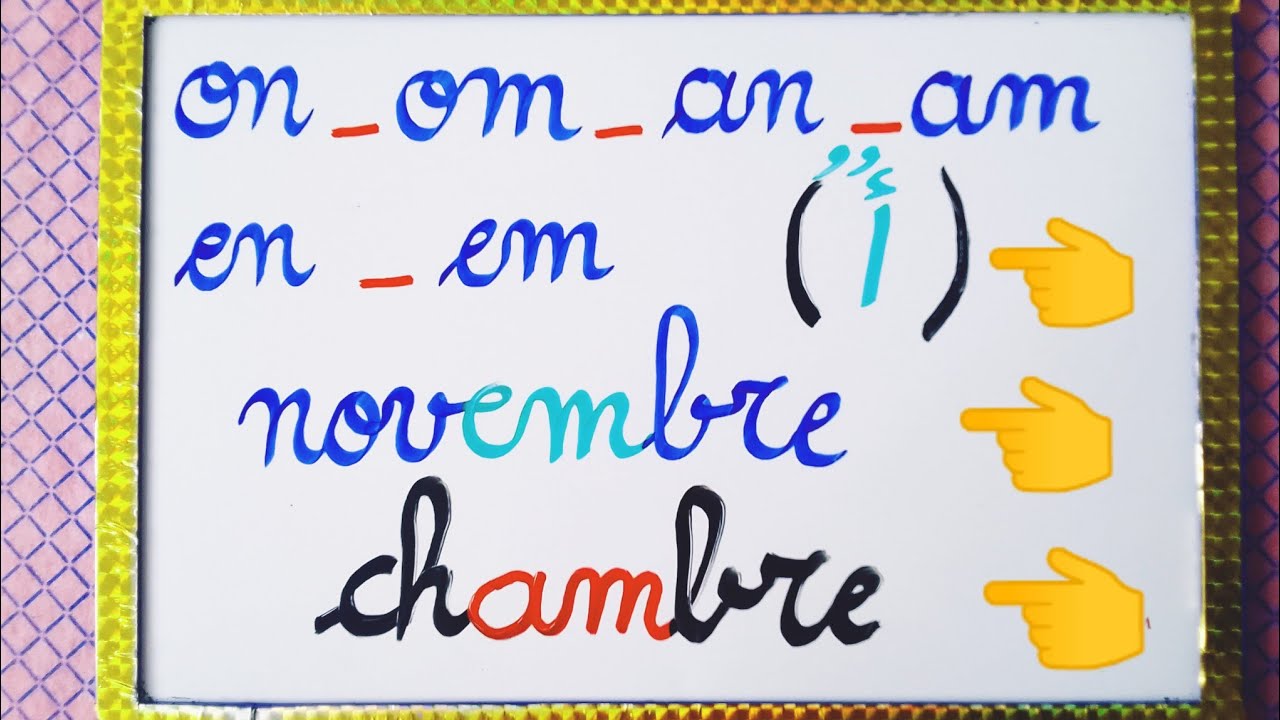 on _ om _ an _ am
en _ em (أٌ)
novembre
chambre